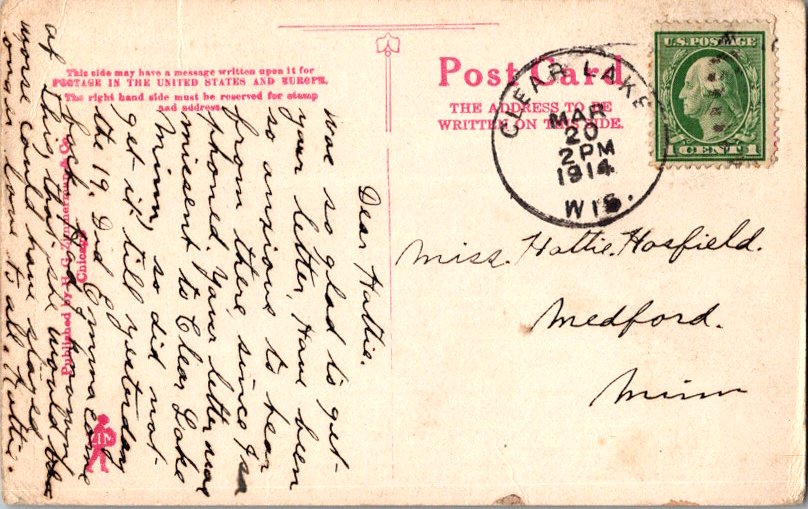 This side may have a message written upon it for
POSTAGE IN THE UNITED STATES AND EUROPE.
The right hand side must be reserved for stamp
and address.
Post Card.
THE ADDRESS TO BE
WRITTEN ON THIS SIDE.
CLEAR LAKE
MAR
20
2 PM
1914
WIS.
U.S. POSTAGE
1 CENT 1
Miss. Hattie. Hosfield.
Medford.
Minn
Dear Hattie.
Was so glad to get
your letter, Have been
so anxious to hear
from there, since
phoned. Your letter was
missent to Clear Lake
Minn, so did not
get it till yesterday
the 19. Did Emma come
back, And
of this, that she would be
worse could have stayed
love to all.
Published by H. G. Zimmerman & Co.
Chicago